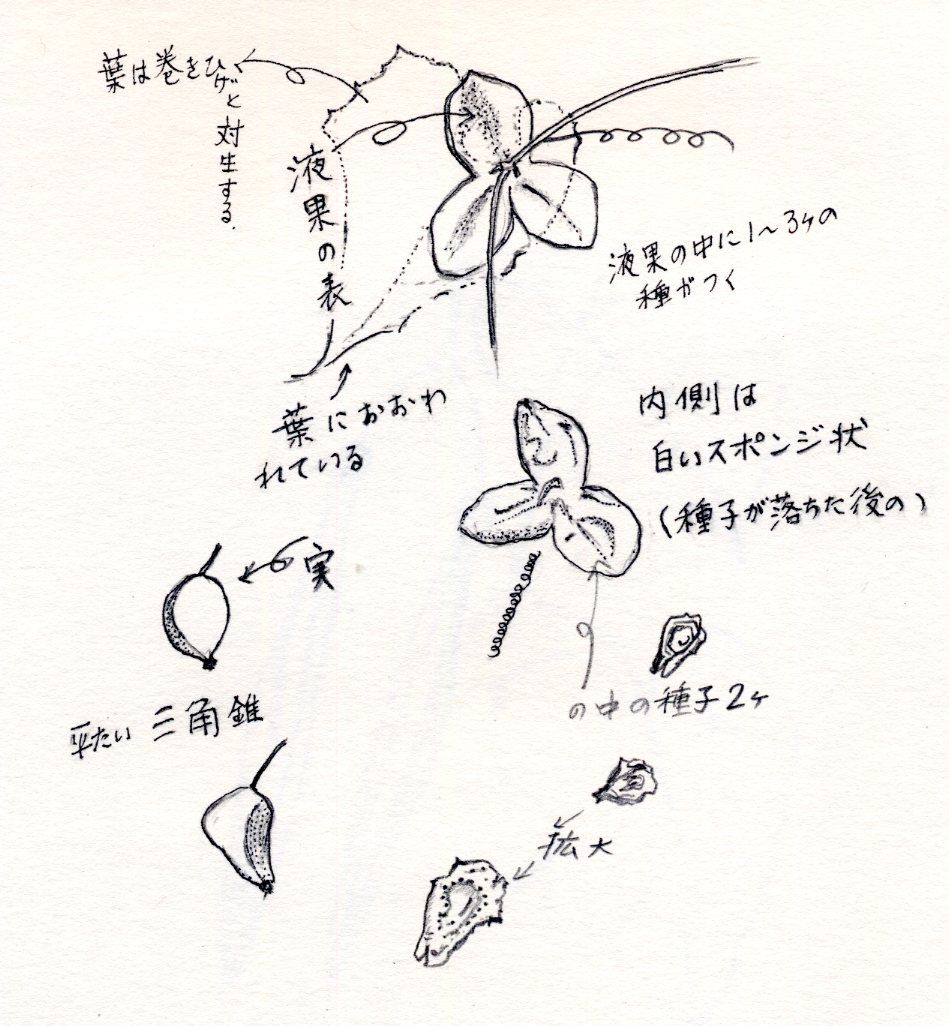 葉は巻きひげと対生する.
液果の表
液果の中に1〜3ヶの
種がつく
葉におおわ
れている
内側は
白いスポンジ状
(種子が落ちた後の)
実
の中の種子2ヶ
平たい三角錐
拡大